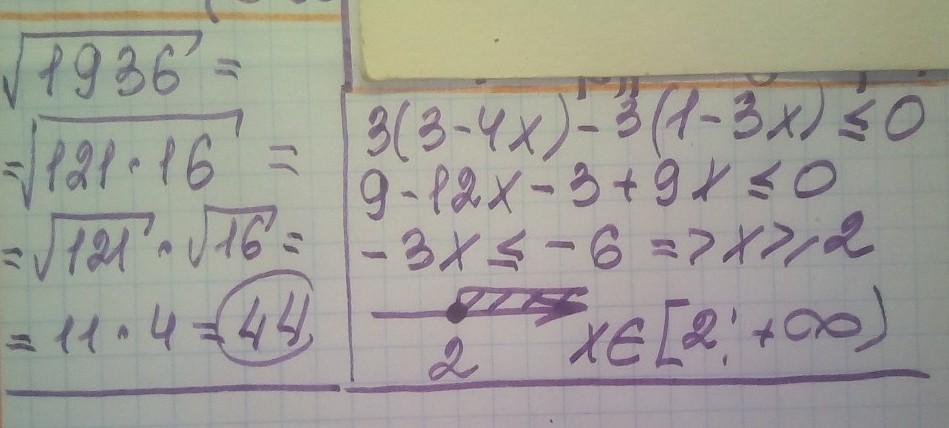 √1936 =
= √121·16 =
= √121 · √16 =
= 11 · 4 = 44
3(3-4x)-3(1-3x) ≤ 0
9-12x-3+9x ≤ 0
-3x ≤ -6 => x ≥ 2
2
x∈[2; +∞)